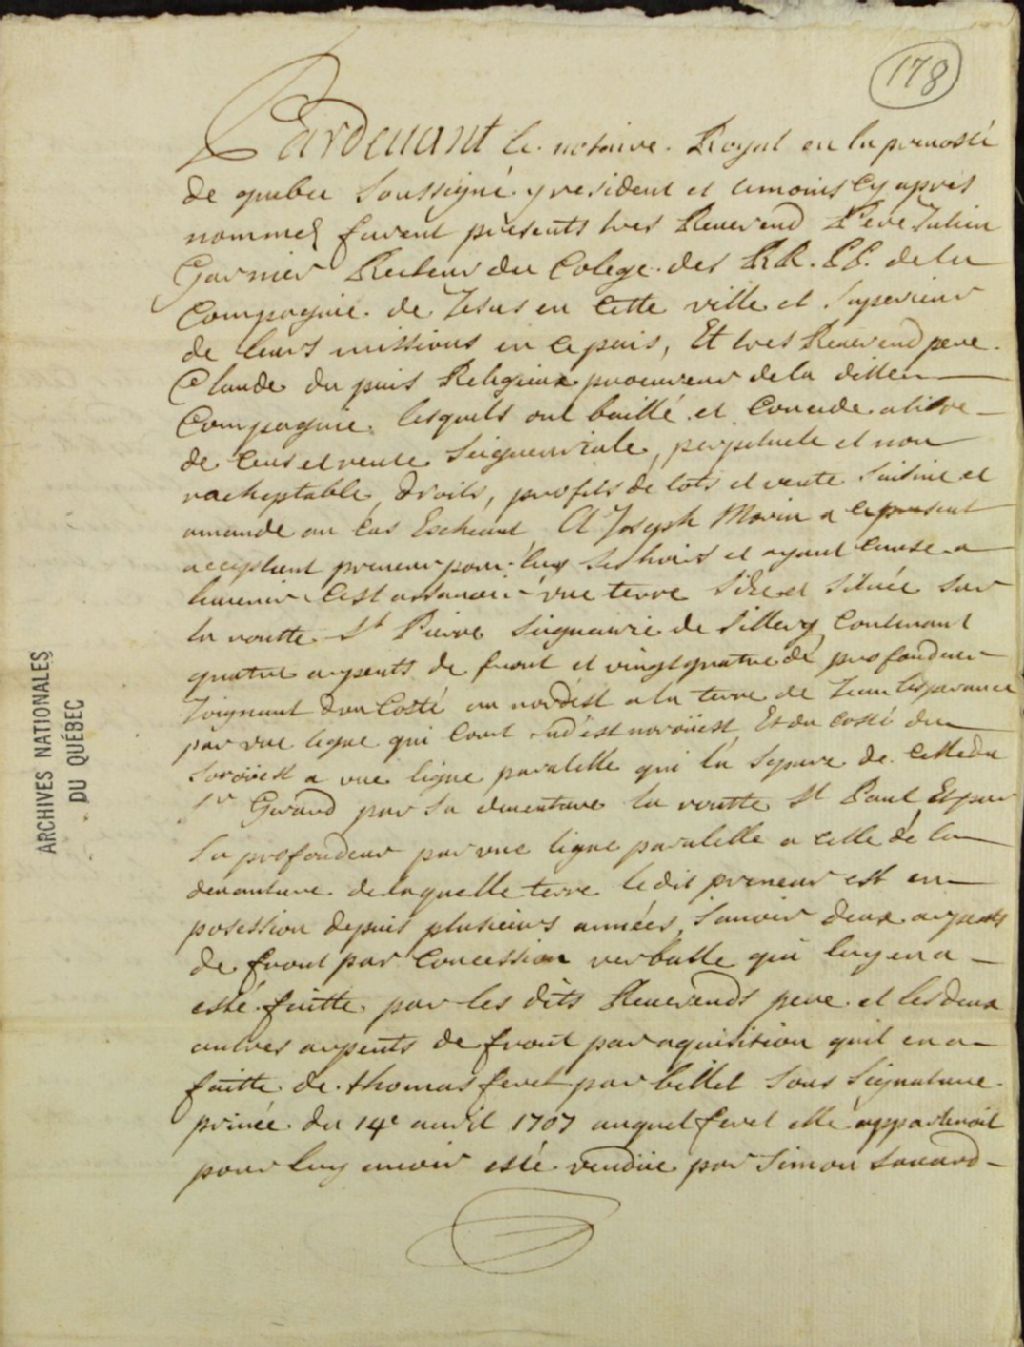 178
Pardevant le notaire Royal en la prevosté
de quebec soussigné y resident et temoins cy apres
nommez furent presents tres Reverend Pere Julien
Garnier Recteur du Colege des RR. PP. de la
Compagnie de Jesus en cette ville et superieur
de leurs missions en ce pais, Et tres Reverend pere
Claude du puis Religieux procureur de la ditte
Compagnie lesquels ont baillé et concede a titre
de cens et rente seigneuriale, perpetuele et non
racheptable, droits, profits de lots et vente saisine et
amande au cas Escheant A Joseph Morin a ce present
acceptant preneur pour luy ses hoirs et ayant cause a
lavenir Cest assavoir vne terre size et située sur
la routte St Pierre seigneurie de sillery contenant
quatre arpents de front et vingt quatre de profondeur
Joignant dun costé au nordest a la terre de Jean lesperance
par vne ligne qui court sud'est noroüest Et du costé du
soroüest a vne ligne paralelle qui la separe de celle du
sr Girard par sa devanture la routte St Paul Et par
sa profondeur par vne ligne paralelle a celle de la
devanture de laquelle terre ledit preneur est en
posession depuis plusieurs années, sauoir deux arpents
de front par Concession verballe qui luy en a
esté faitte par les dits Reverends pere et les deux
autres arpents de front par aquisition quil en a
faitte de thomas feret par billet sous signature
privée du 14e auril 1707 auquel feret elle appartenoit
pour luy avoir esté vendüe par Simon Savard
ARCHIVES NATIONALES
DU QUÉBEC